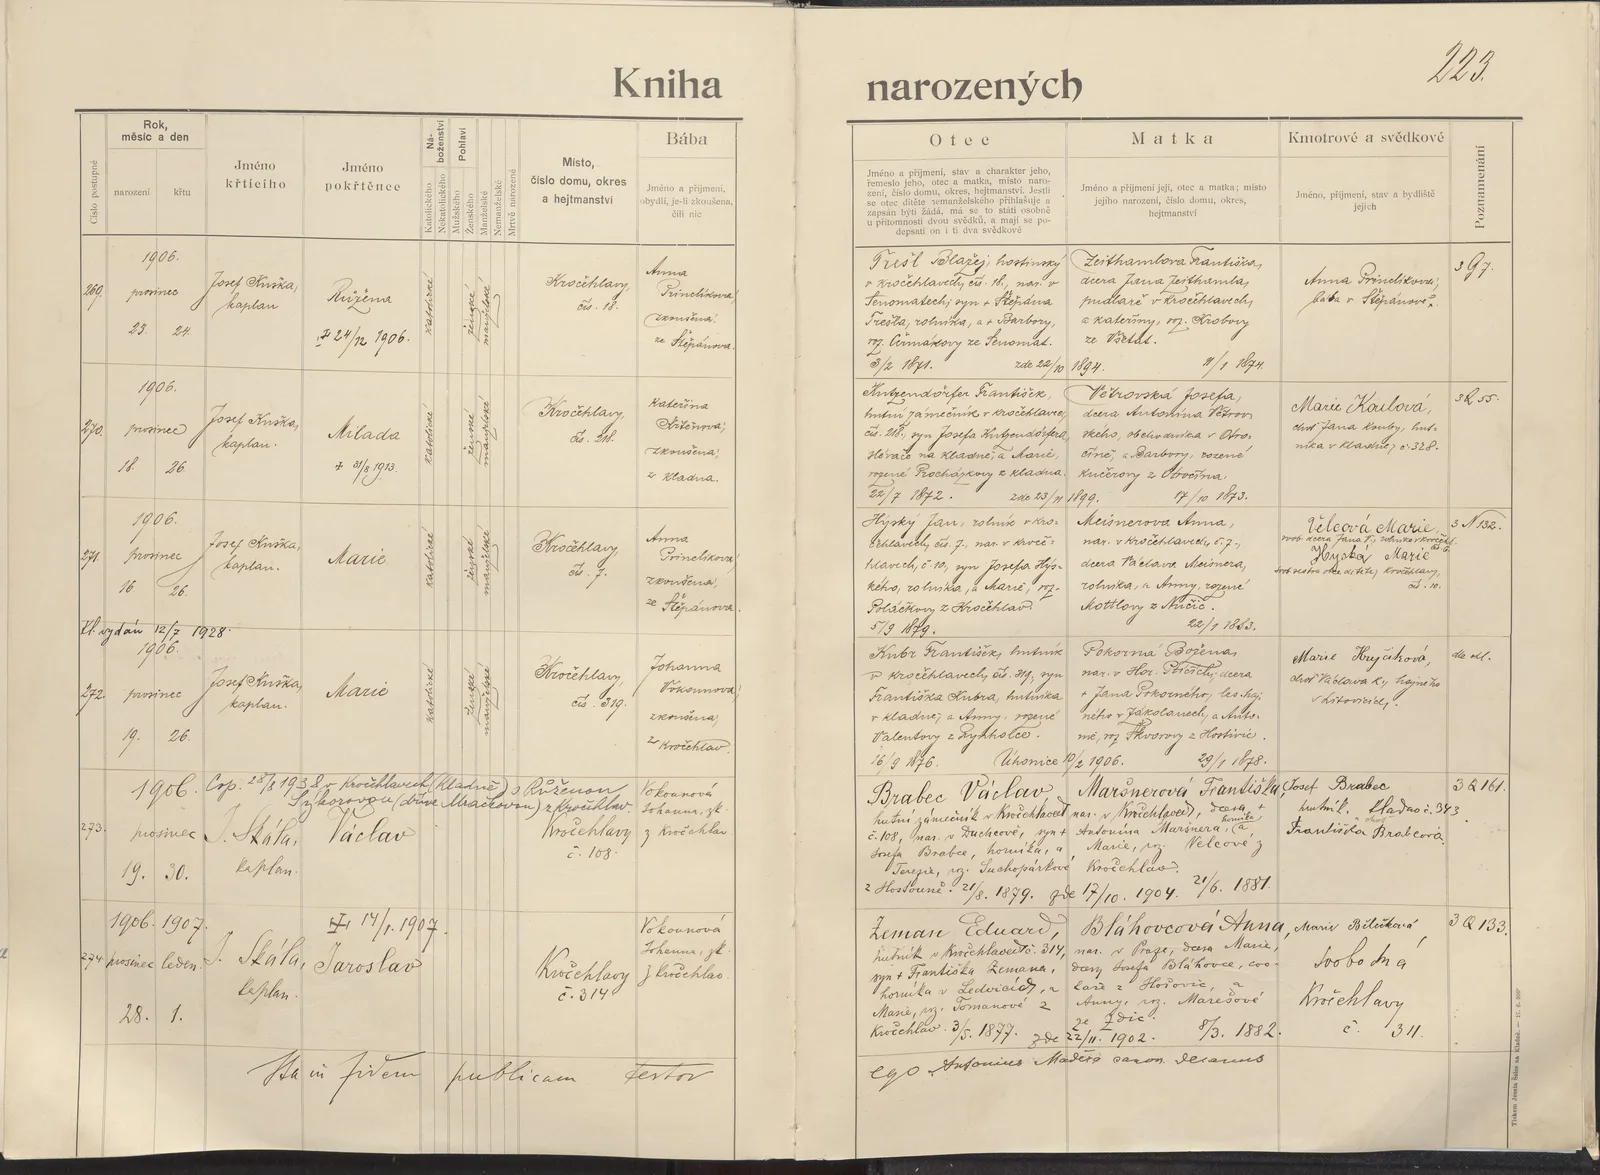 223.
Kniha narozených
Číslo postupné
Rok,
měsíc a den
narození
křtu
Jméno
křtícího
Jméno
pokřtěnce
Ná-
boženství
Katolického
Nekatolického
Pohlaví
Mužského
Ženského
Manželské
Nemanželské
Mrtvě narozené
Místo,
číslo domu, okres
a hejtmanství
Bába
Jméno a přijmení,
obydlí, je-li zkoušena,
čili nic
Otec
Jméno a přijmení, stav a charakter jeho,
řemeslo jeho, otec a matka, místo naro-
zení, číslo domu, okres, hejtmanství. Jestli
se otec dítěte nemanželského přihlašuje a
zapsán býti žádá, má se to státi osobně
u přítomnosti dvou svědků, a mají se po-
depsati on i ti dva svědkové
Matka
Jméno a přijmení její, otec a matka; místo
jejího narození, číslo domu, okres,
hejtmanství
Kmotrové a svědkové
Jméno, přijmení, stav a bydliště
jejich
Poznamenání
269.
1906.
prosinec
23. 24.
Josef Kuška,
kaplan
Růžena
24/12 1906.
katolické
ženské
manželské
Kročehlavy,
čís. 18.
Anna
zkoušena,
ze Štěpánova.
Trešl Blažej, hostinský
v Kročehlavech, čís. 18, nar. v
Senomatech, syn + Štěpána
Trešla, rolníka, a + Barbory,
roz. Čermákovy ze Senomat.
3/2 1871. zde 22/10 1894.
Zeithamlova Františka,
dcera Jana Zeithamla,
v Kročehlavech,
a Kateřiny, roz. Krobovy
ze Všetat.
11/1 1874.
Anna
bába v Štěpánově.
3 97.
270.
1906.
prosinec
18. 26
Josef Kuška,
kaplan.
Milada
+ 31/8 1913.
katolické
ženské
manželské
Kročehlavy,
čís. 218.
Kateřina
zkoušena,
z Kladna.
Hutzendörfer František,
hutní zámečník v Kročehlavech,
čís. 218, syn Josefa Hutzendörfera,
na Kladně, a Marie,
rozené Procházkovy z Kladna.
22/7 1872. zde 23/11 1899.
Větrovská Josefa,
dcera Antonína Větrov-
ského, obchodníka v Otvo-
a Barbory, rozené
Kučerovy z
17/10 1873.
Marie Koulová,
choť Jana Kouly, hut-
níka v Kladně, č. 328.
3 Q 55.
271.
1906.
prosinec
16 26.
Josef Kuška,
kaplan.
Marie
katolické
ženské
manželské
Kročehlavy
čís. 7.
Anna
zkoušena,
ze Štěpánova.
Hýský Jan, rolník v Kro-
čehlavech, čís. 7., nar. v Kroče-
hlavech, č. 10, syn Josefa Hýs-
kého, rolníka, a Marie, roz.
Poláčkovy z Kročehlav.
5/9 1879.
Meisnerova Anna,
nar. v Kročehlavech, č. 7.,
dcera Václava Meisnera,
rolníka, a Anny, rozené
Mottlovy z Nučic.
22/1 1883.
Velcová Marie,
Hýská Marie
sestra otce dítěte, Kročehlavy,
čís. 10.
3 N 132.
Kl. vydán 12/7 1928.
272.
1906.
prosinec
19. 26.
Josef Kuška,
kaplan.
Marie
katolické
ženské
manželské
Kročehlavy,
čís. 319.
Johanna
Vokounova,
zkoušena,
z Kročehlav.
Kubr František, hutník
v Kročehlavech, čís. 319, syn
Františka Kubra, hutníka
v Kladně, a Anny, rozené
Valentovy z
16/9 1876. Úhonice 10/2 1906.
Pokorná Božena,
nar. v Hor. dcera
+ Jana Pokorného, les. haj-
ného v Zákolanech, a Anto-
nie, roz. Škvorovy z Hostivic.
29/1 1878.
Marie Hryčíková,
choť Václava K., hajného
v
dto dl.
273.
1906.
prosinec
19. 30.
Cop. 28/8 1938 v Kročehlavech (Kladně) s Růženou
Sýkorovou (dříve Mračkovou) z Kročehlav.
J. Skála,
kaplan.
Václav
Kročehlavy
č. 108.
Vokounová
Johanna, zk.
z Kročehlav
Brabec Václav
hutní zámečník v Kročehlavech
č. 108, nar. v Duchcově, syn +
Josefa Brabce, horníka, a
Terezie, roz. Suchopárkové
z Hostouně. 21/8. 1879. zde 17/10. 1904.
Maršnerová Františka,
nar. v Kročehlavech, dcera +
Antonína Maršnera, horníka, a
Marie, roz. Velcové z
Kročehlav.
21/6. 1881.
Josef Brabec
hutník, Kladno č. 343
a choť
Františka Brabcová.
3 Q 161.
274.
1906. 1907.
prosinec leden.
28. 1.
J. Skála,
kaplan.
14/1. 1907.
Jaroslav
Kročehlavy
č. 314
Vokounová
Johanna, zk.
z Kročehlav.
Zeman Eduard,
hutník v Kročehlavech č. 314,
syn + Františka Zemana,
horníka v Ledvicích, a
Marie, roz. Tomanové z
Kročehlav. 3/5. 1877. zde 22/11. 1902.
Bláhovcová Anna,
nar. v Praze, dcera Marie,
dcery Josefa Bláhovce,
z Hořovic, a
Anny, roz. Marešové
ze Zdic.
8/3. 1882.
Marie
svobodná
Kročehlavy
č. 311.
3 Q 133.
Ita in fidem publicam testor
ego Antonius Maděra canon. decanus
Tiskem Josefa Šolce na Kladně.